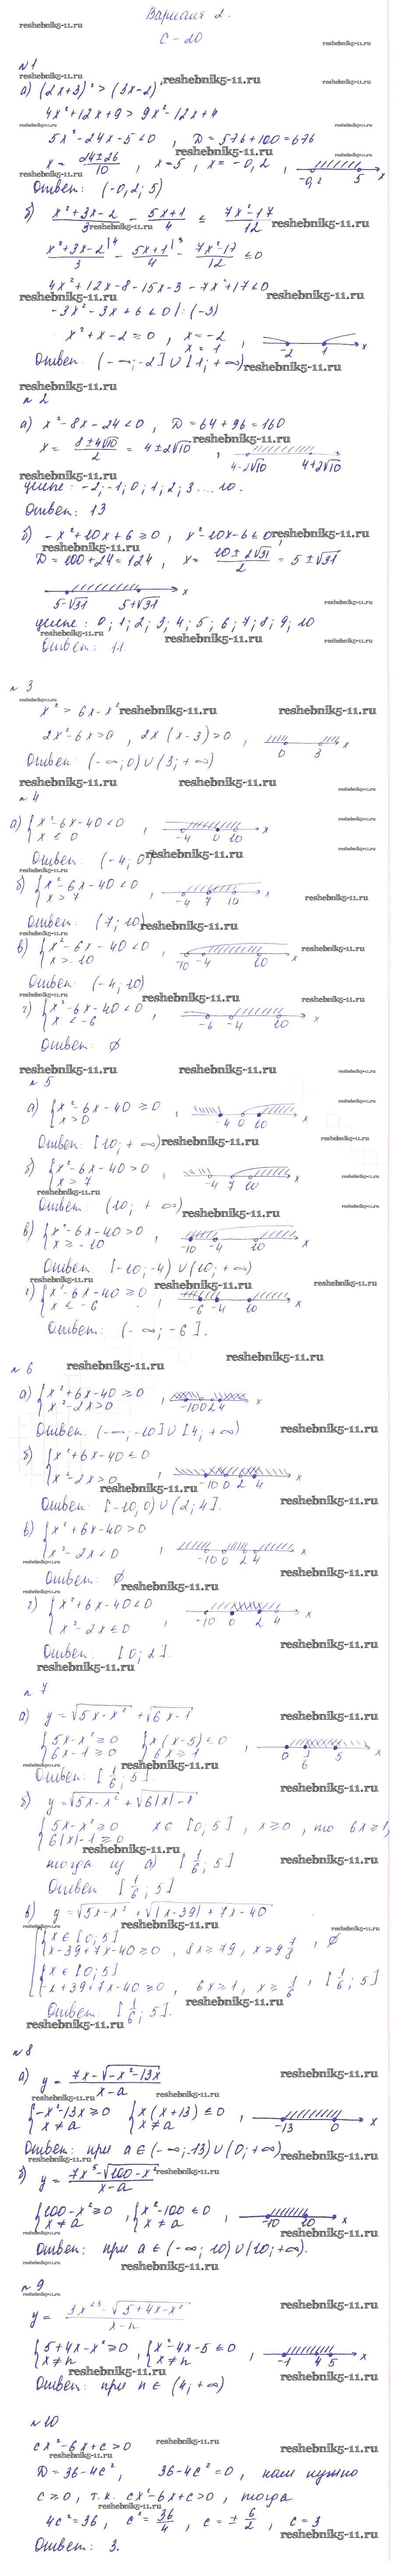 Вариант 2.
С-20
№1
а) (2x+3)² > (3x-2)²
4x²+12x+9 > 9x²-12x+4
5x²-24x-5<0, D=576+100=676
x= (24±26)/10, x=5, x=-0,2,
Ответ: (-0,2; 5)
б) (x²+3x-2)/3 - (5x+1)/4 ≤ (7x²-17)/12
(x²+3x-2)/3 |4 - (5x+1)/4 |3 - (7x²-17)/12 ≤0
4x²+12x-8-15x-3-7x²+17<0
-3x²-3x+6<0 /:(-3)
x²+x-2≥0, x=-2
x=1,
-2 1 x
Ответ: (-∞;-2] ∪ [1; +∞)
№2
а) x²-8x-24<0, D=64+96=160
x= (8±4√10)/2 = 4±2√10,
4-2√10 4+2√10
целые: -2;-1;0;1;2;3....10.
Ответ: 13
б) -x²+10x+6≥0, x²-10x-6≤0
D=100+24=124, x= (10±2√31)/2 = 5±√31
5-√31 5+√31 x
целые: 0;1;2;3;4;5;6;7;8;9;10
Ответ: 11.
№3
x² > 6x-x²
2x²-6x>0, 2x(x-3)>0, 0 3 x
Ответ: (-∞;0)∪(3;+∞)
№4
а) {x²-6x-40<0
x≤0, -4 0 10 x
Ответ: (-4; 0]
б) {x²-6x-40<0
x>7, -4 7 10 x
Ответ: (7; 10)
в) {x²-6x-40<0
x>-10, -10 -4 10 x
Ответ: (-4; 10)
г) {x²-6x-40<0
x<-6, -6 -4 10 x
Ответ: ∅
№5
а) {x²-6x-40≥0
x>0, -4 0 10 x
Ответ: [10; +∞)
б) {x²-6x-40>0
x>7, -4 7 10 x
Ответ: (10; +∞)
в) {x²-6x-40>0
x≥-10, -10 -4 10 x
Ответ: [-10;-4) ∪ (10; +∞)
г) {x²-6x-40≥0
x≤-6, -6 -4 10 x
Ответ: (-∞; -6].
№6
а) {x²+6x-40≥0
x²-2x>0, -10 0 2 4 x
Ответ: (-∞;-10]∪[4;+∞)
б) {x²+6x-40≤0
x²-2x>0, -10 0 2 4 x
Ответ: [-10;0)∪(2;4].
в) {x²+6x-40>0
x²-2x<0, -10 0 2 4 x
Ответ: ∅
г) {x²+6x-40<0
x²-2x≤0, -10 0 2 4 x
Ответ: [0; 2].
№7
а) y=√(5x-x²) + √(6x-1)
{5x-x²≥0 {x(x-5)≤0
6x-1≥0 6x≥1, 0 1/6 5 x
Ответ: [1/6; 5].
б) y=√(5x-x²) + √(6|x|-1)
{5x-x²≥0 x∈[0;5], x≥0, то 6x≥1,
6|x|-1≥0
тогда из а) [1/6; 5]
Ответ [1/6; 5]
в) y=√(5x-x²) + √(|x-39|+7x-40)
{x∈[0;5]
x-39+7x-40≥0, 8x≥79, x≥9 7/8, ∅
{x∈[0;5]
-x+39+7x-40≥0, 6x≥1, x≥1/6, [1/6; 5]
Ответ: [1/6; 5].
№8
а) y= (7x-√(-x²-13x))/(x-a)
{-x²-13x≥0 {x(x+13)≤0
x≠a x≠a, -13 0 x
Ответ: при a∈(-∞;-13)∪(0;+∞)
б) y= (7x⁵-√(100-x²))/(x-a)
{100-x²≥0, {x²-100≤0
x≠a x≠a, -10 10 x
Ответ: при a∈(-∞; 10)∪(10;+∞).
№9
y= (3x²³-√(5+4x-x²))/(x-n)
{5+4x-x²≥0, {x²-4x-5≤0
x≠n x≠n, -1 4 5 x
Ответ: при n∈(4;+∞)
№10
cx²-6x+c>0
D=36-4c², 36-4c²=0, нам нужно
c≥0, т.к. cx²-6x+c>0, тогда
4c²=36, c²=36/4, c=±6/2, c=3
Ответ: 3.
reshebnik5-11.ru